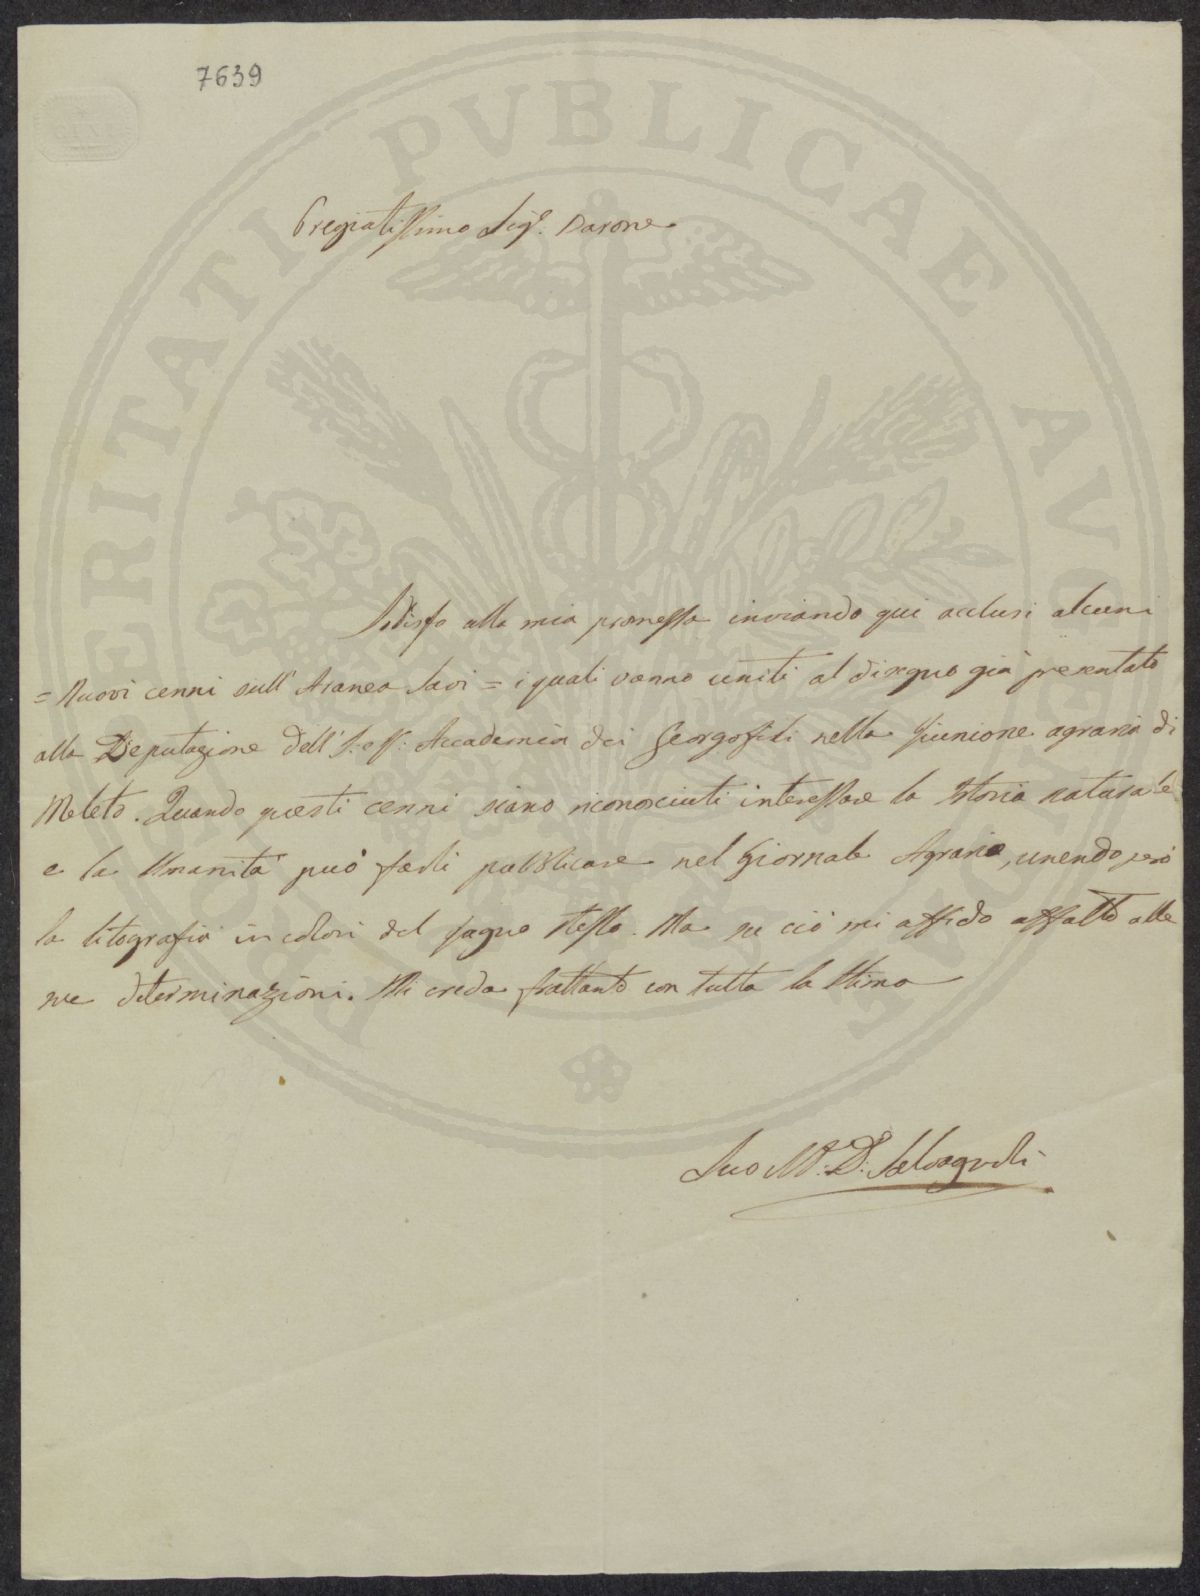 7639
PROSPERITATI PVBLICAE AVGENDAE
Pregiatissimo Sigr. Barone
Sodisfo alla mia promessa inviando qui acclusi alcuni
= Nuovi cenni sull' Aranea Savi = i quali vanno uniti al disegno già presentato
alla Deputazione dell' I: e R: Accademia dei Georgofili nella Riunione agraria di
Meleto. Quando questi cenni siano riconosciuti interessare la Storia naturale
e la Umanità può farli pubblicare nel Giornale Agrario, unendo però
la litografia in colori del ragno stesso. Ma su ciò mi affido affatto alle
sue determinazioni. Mi creda frattanto con tutta la stima
Suo Dr: Salvagnoli